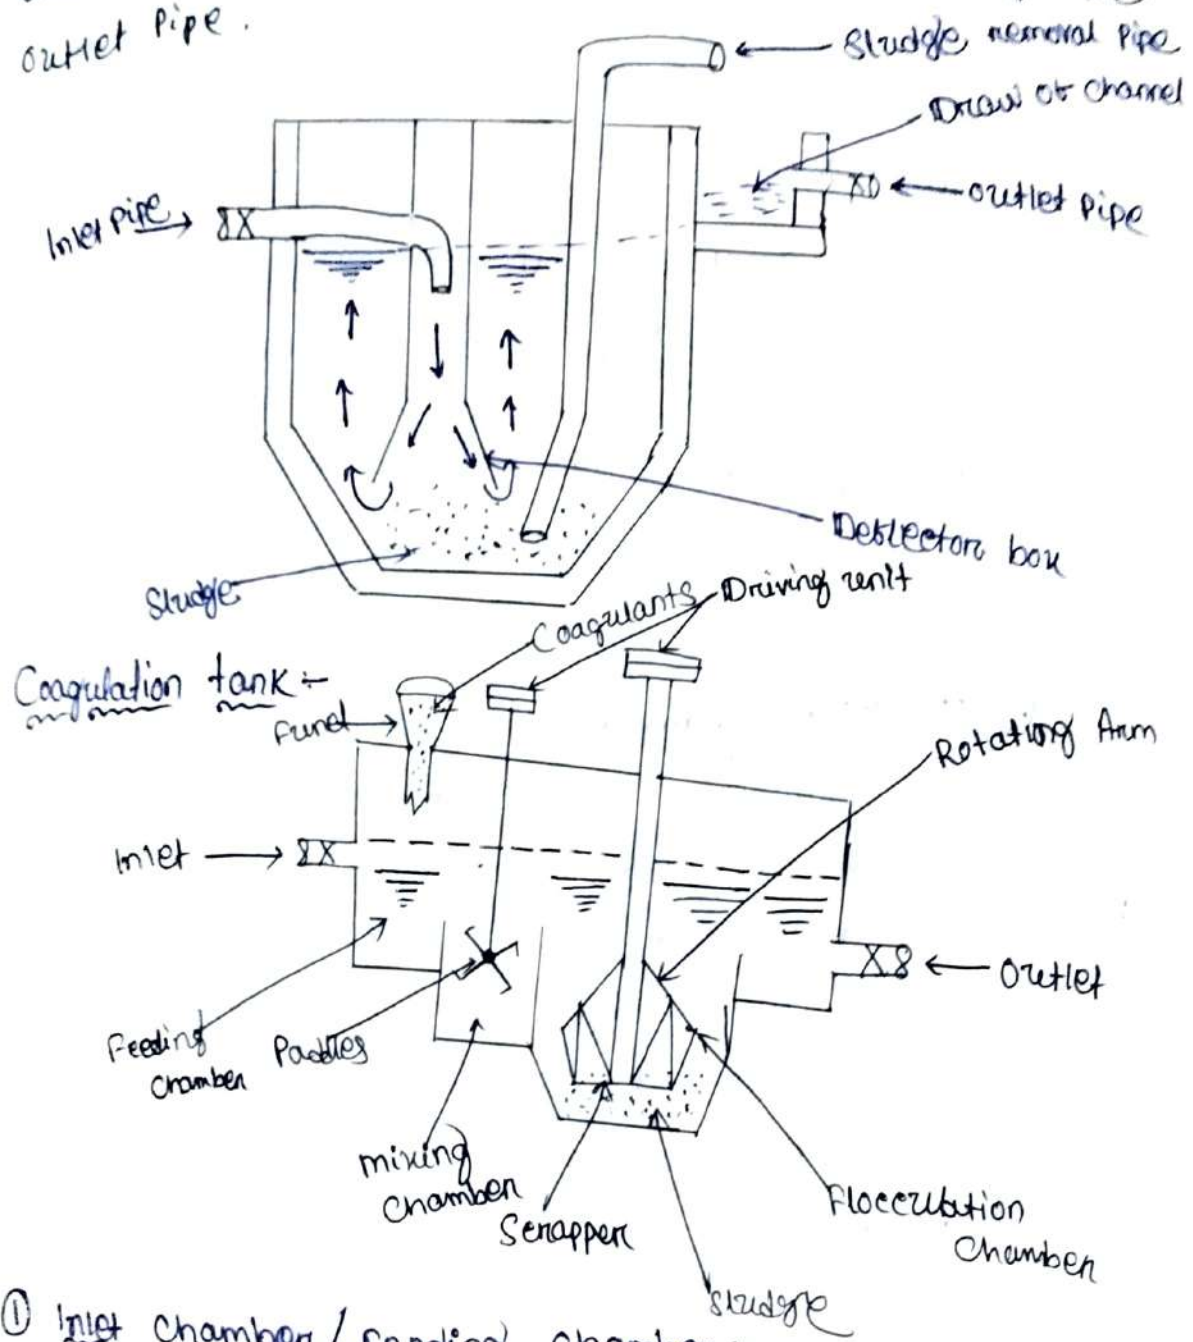 Outlet Pipe.
Sludge removal Pipe
Draw of Channel
Inlet pipe
outlet pipe
Deflector box
Sludge
Coagulants
Driving unit
Coagulation tank :-
Funel
Rotating Arm
Inlet
Outlet
Feeding
Chamber
Paddles
mixing
Chamber
Scrapper
Flocculation
Chamber
Sludge
① Inlet Chamber /